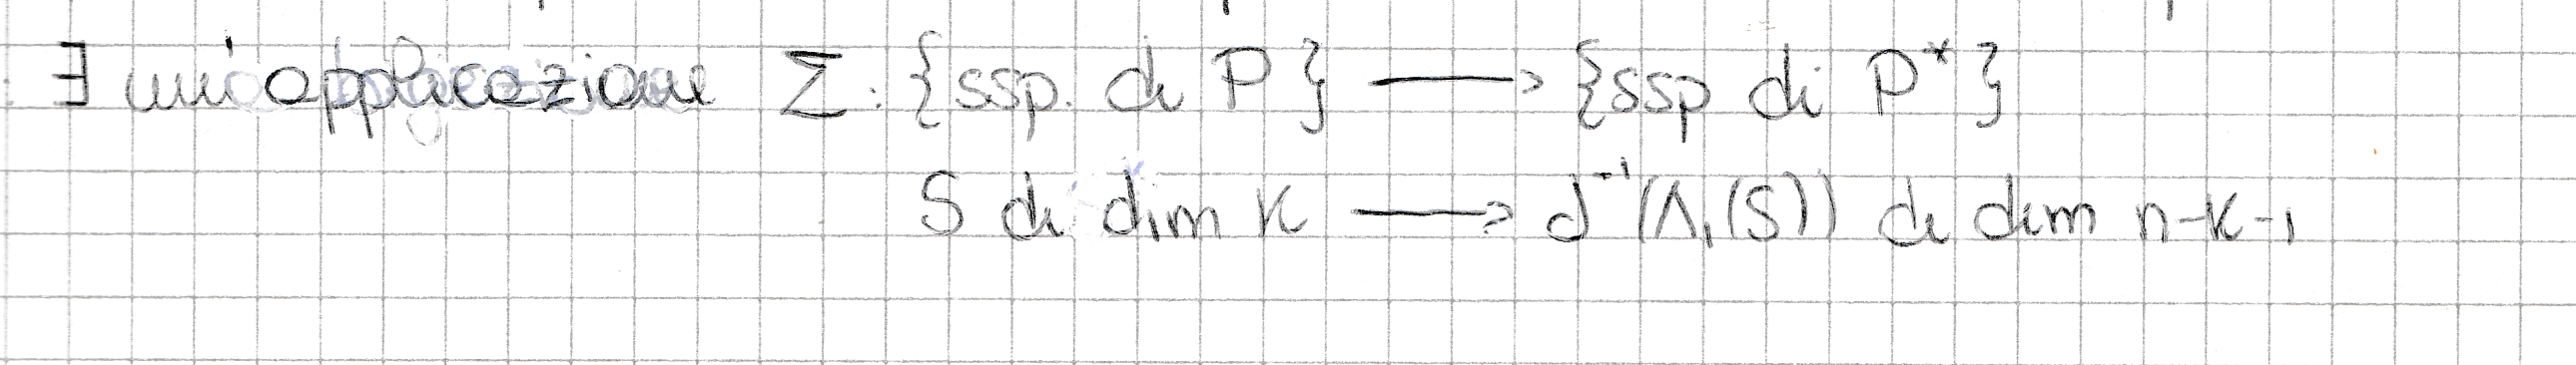 ∃ un'applicazione Σ: {ssp. di P} → {ssp di P*}
S di dim K → J⁻¹(Λ₁(S)) di dim n-K-1